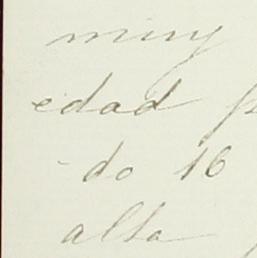 muy
edad
-do 16
alta